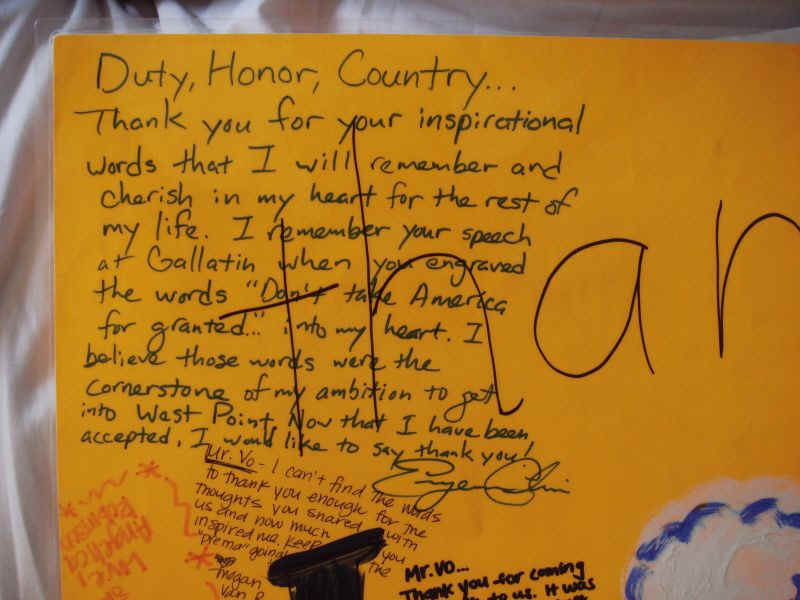 Duty, Honor, Country...
Thank you for your inspirational
words that I will remember and
cherish in my heart for the rest of
my life. I remember your speech
at Gallatin when you engraved
the words "Don't take America
for granted..." into my heart. I
believe those words were the
cornerstone of my ambition to get
into West Point. Now that I have been
accepted, I would like to say thank you!
than
Mr. Vo - I can't find the words
to thank you enough for the
thoughts you shared with
us and how much you
inspired me. Keep the
"prema" going
Megan
Van
Love,
Angelica
Mr. Vo...
Thank you for coming
to us. It was